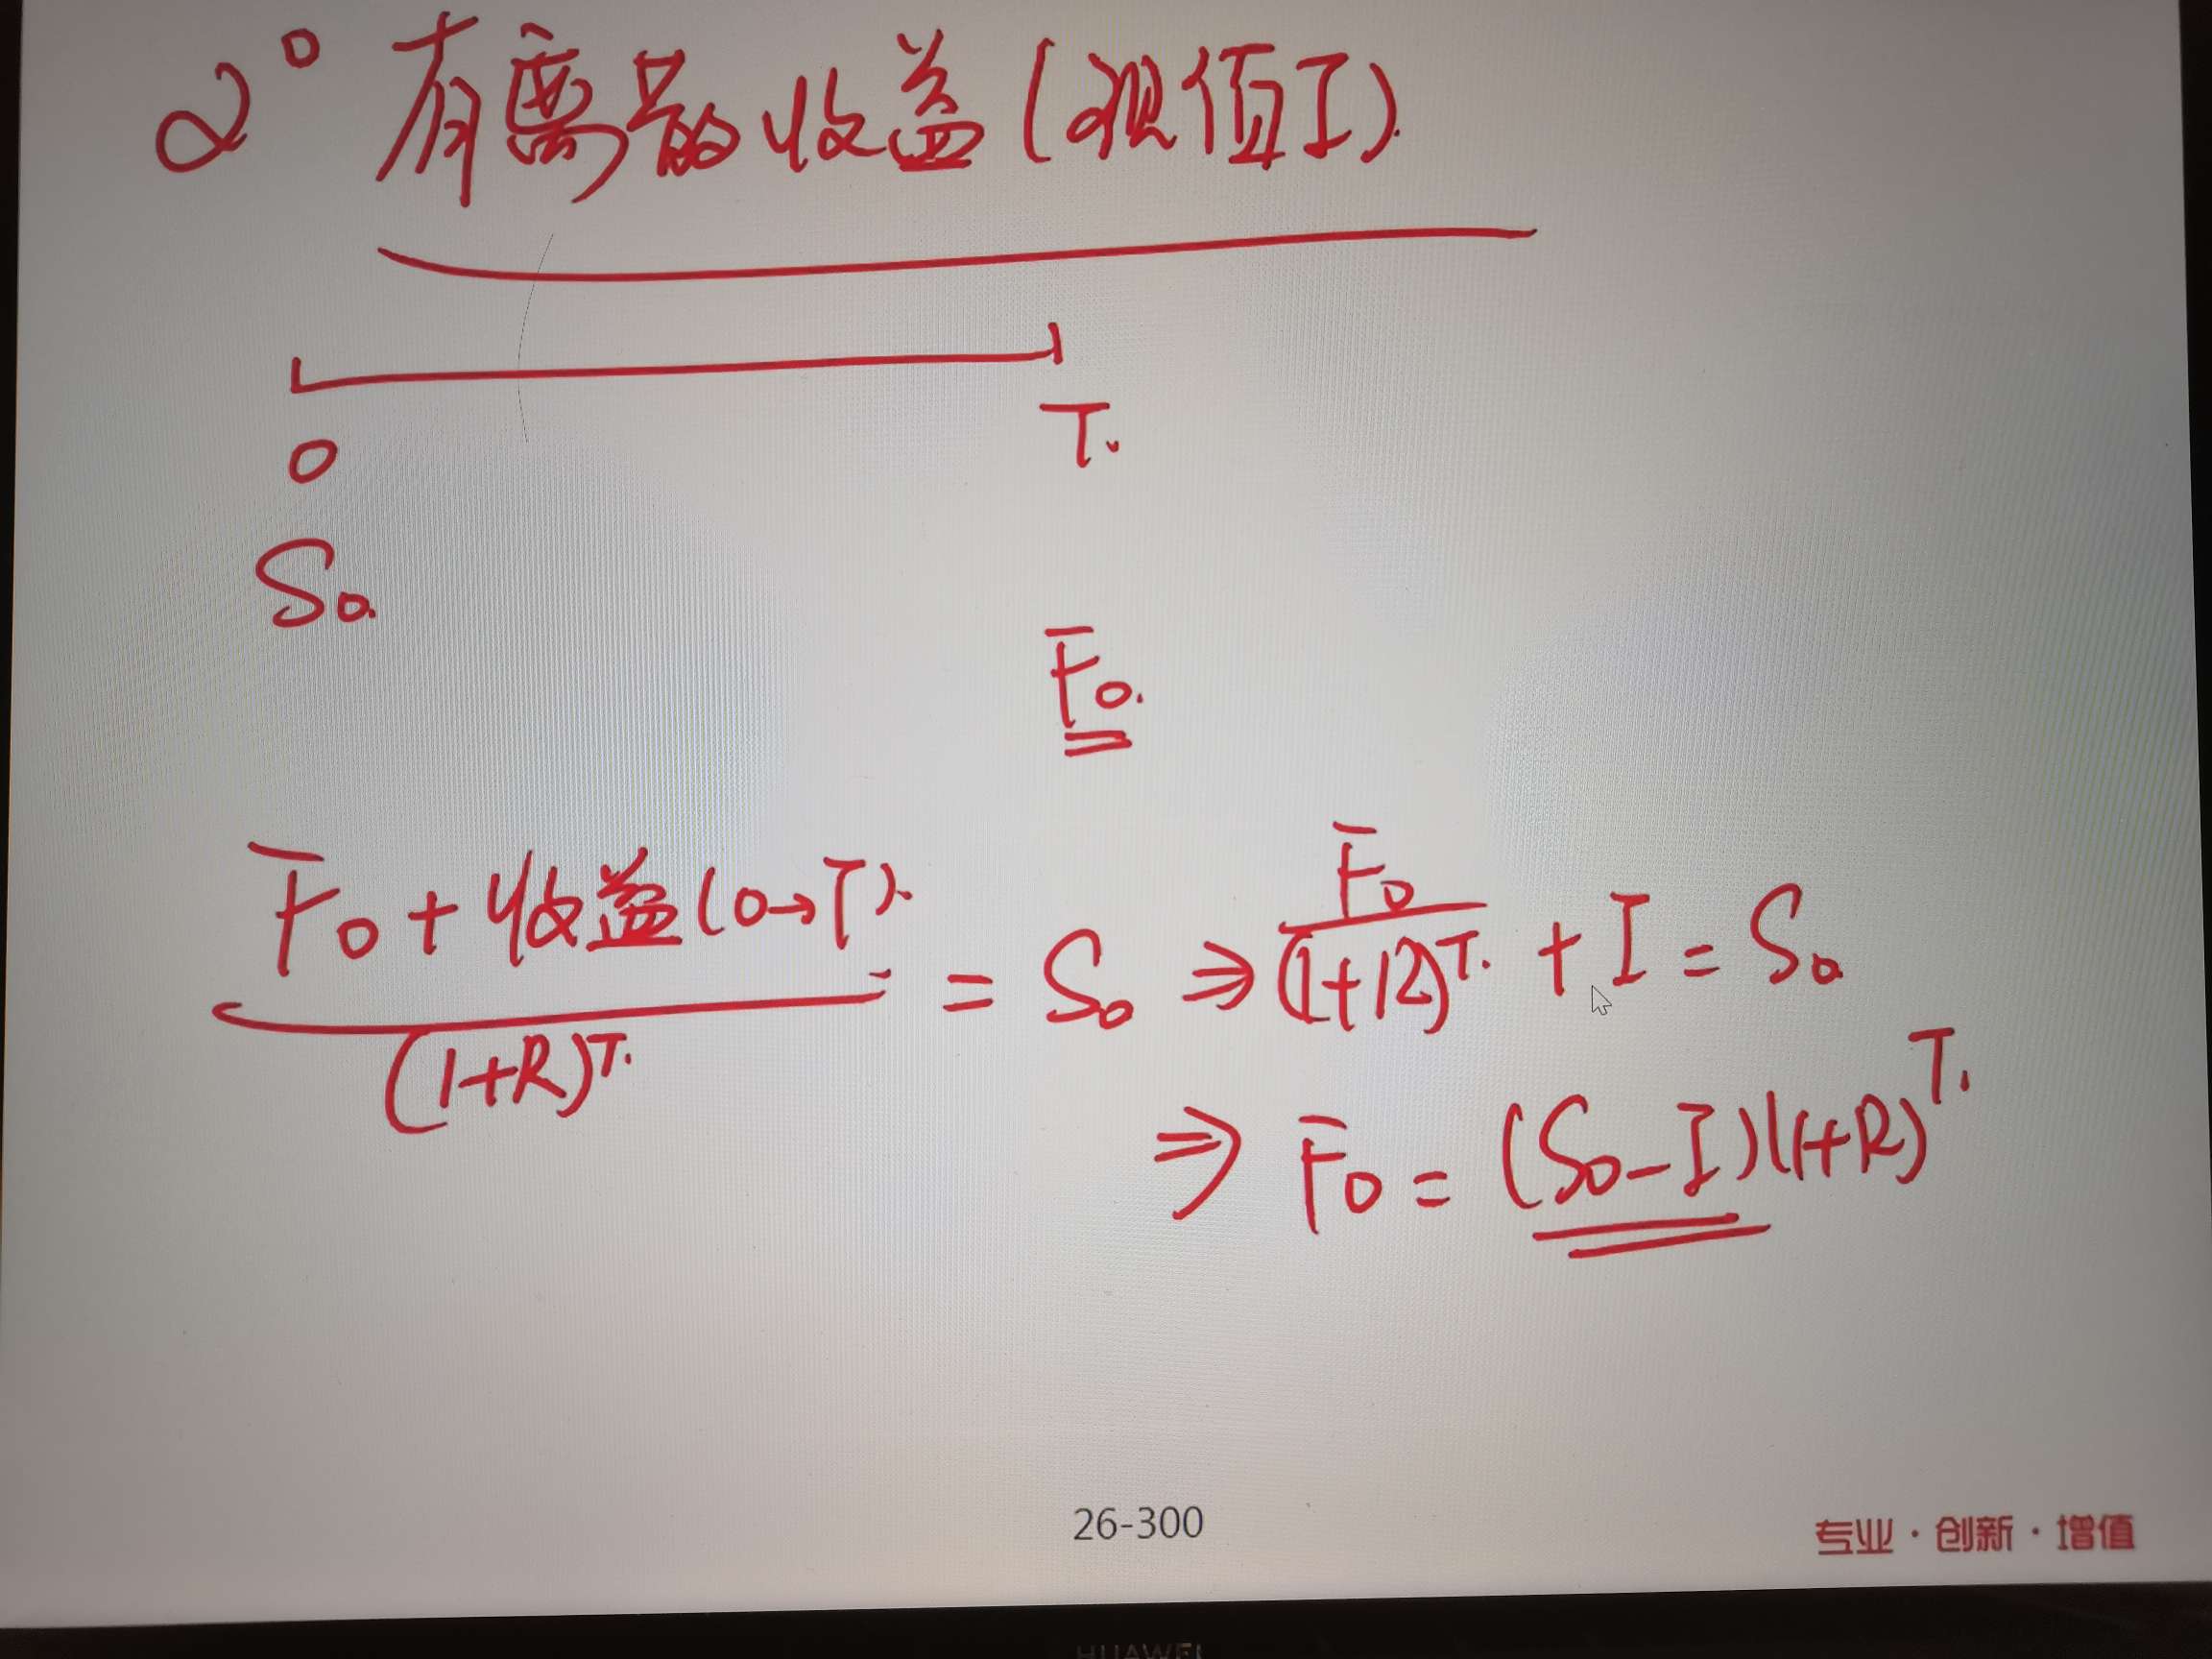 2° 有离散的收益(现值I).
0 T.
S₀.
F₀.
F₀+收益(0→T). / (1+R)^T. = S₀ ⇒ F₀ / (1+R)^T. + I = S₀
⇒ F₀ = (S₀-I)(1+R)^T.
26-300
专业·创新·增值
HUAWEI